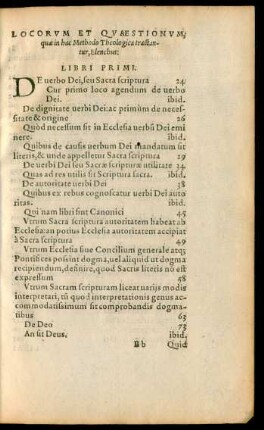 LOCORVM ET QVAESTIONVM,
quæ in hac Methodo Theologica tractan-
tur, Elenchus:
LIBRI PRIMI.
DE uerbo Dei, seu Sacra scriptura 24.
Cur primo loco agendum de uerbo
Dei. ibid.
De dignitate uerbi Dei: ac primùm de neces-
sitate & origine 26
Quòd necessum sit in Ecclesia uerbũ Dei emi
nere. ibid.
Quibus de causis uerbum Dei mandatum sit
literis, & unde appelletur Sacra scriptura 29
De uerbi Dei seu Sacræ scripturæ utilitate 34
Quas ad res utilis sit Scriptura sacra. ibid.
De autoritate uerbi Dei 38
Quibus ex rebus cognoscatur uerbi Dei auto
ritas. ibid.
Qui nam libri sint Canonici 45
Vtrum Sacra scriptura autoritatem habeat ab
Ecclesia: an potius Ecclesia autoritatem accipiat
à Sacra scriptura 49
Vtrum Ecclesia siue Concilium generale atqȝ
Pontifices possint dogma, uel aliquid ut dogma
recipiendum, definire, quod Sacris literis nõ est
expressum 58
Vtrum Sacram scripturam liceat uarijs modis
interpretari, tũ quod interpretationis genus ac-
commodatissimum sit comprobandis dogma-
tibus 63
De Deo 73
An sit Deus. ibid.
Bb Quid